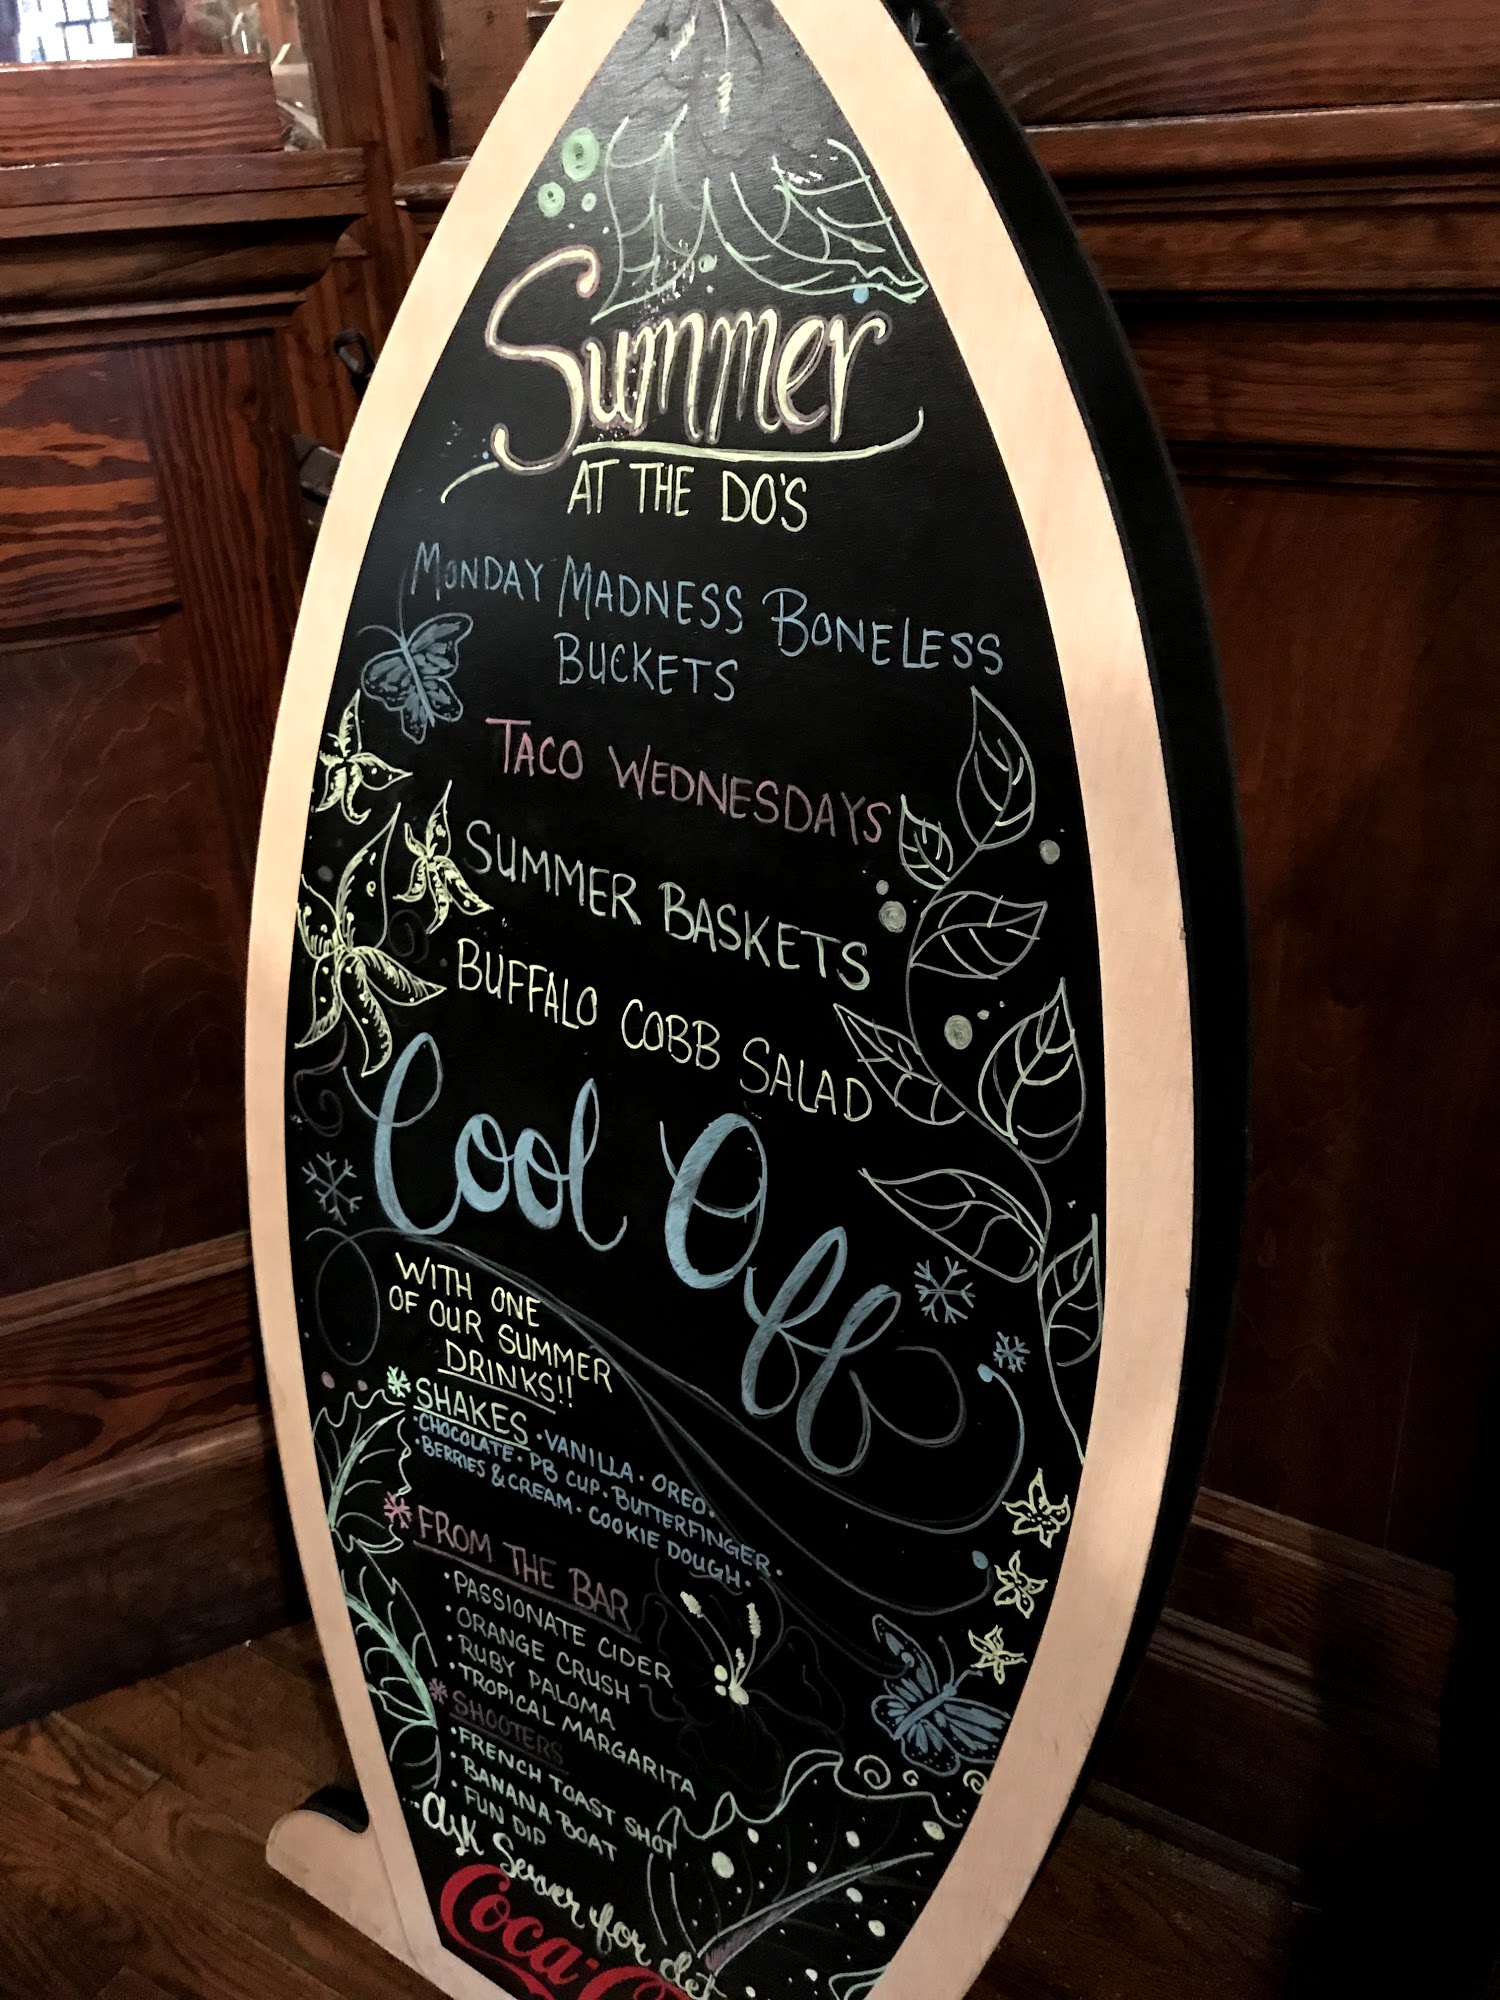 Summer
AT THE DO'S
MONDAY MADNESS BONELESS
BUCKETS
TACO WEDNESDAYS
SUMMER BASKETS
BUFFALO COBB SALAD
Cool Off
WITH ONE
OF OUR SUMMER
DRINKS!!
SHAKES · VANILLA · OREO ·
· CHOCOLATE · PB CUP · BUTTERFINGER ·
· BERRIES & CREAM · COOKIE DOUGH ·
FROM THE BAR
· PASSIONATE CIDER
· ORANGE CRUSH
· RUBY PALOMA
· TROPICAL MARGARITA
SHOOTERS
· FRENCH TOAST SHOT
· BANANA BOAT
· FUN DIP
Ask Server for det
Coca-C